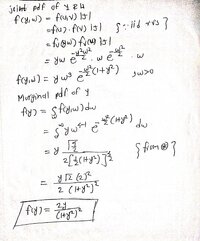 joint pdf of y & u
f(y,w) = f(u,v) |J|
= f(u) · f(v) |J| {∵ iid rvs}
= f_u(yw) f_v(w) |J|
= yw e^{-y²w²/2} · w e^{-w²/2} · w
f(y,w) = y w³ e^{-w²/2 (1+y²)} y,w>0
Marginal pdf of y
f(y) = ∫ f(y,w) dw
= ∫ y w^{4-1} e^{-w²/2 (1+y²)} dw
= y Γ(4/2) / 2[½(1+y²)]^{4/2} {from ⊛}
= y Γ2 (2)² / 2 (1+y²)²
f(y) = 2y / (1+y²)²